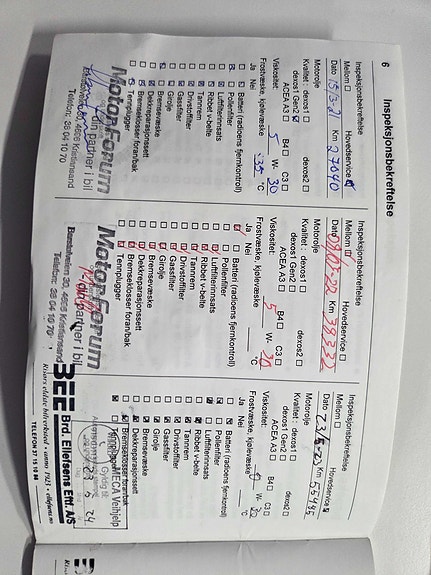 6 Inspeksjonsbekreftelse
Inspeksjonsbekreftelse
Mellom Hovedservice
Dato 15/3-21 Km 27040
Motorolje
Kvalitet: dexos1 dexos2
dexos1 Gen2
ACEA A3 B4 C3
Viskositet: 5 W- 30
Frostvæske, kjølevæske -35 °C
Ja Nei
Batteri (radioens fjernkontroll)
Pollenfilter
Luftfilterinnsats
Ribbet v-belte
Tannrem
Drivstoffilter
Gassfilter
Girolje
Bremsevæske
Dekkreparasjonssett
Bremseklosser foran/bak
Tennplugger
MotorForum
din partner i bil
Barstølveien 30, 4636 Kristiansand
Telefon: 38 04 10 70
Inspeksjonsbekreftelse
Mellom Hovedservice
Dato Km 38332
Motorolje
Kvalitet: dexos1 dexos2
dexos1 Gen2
ACEA A3 B4 C3
Viskositet: 5 W- 30
Frostvæske, kjølevæske °C
Ja Nei
Batteri (radioens fjernkontroll)
Pollenfilter
Luftfilterinnsats
Ribbet v-belte
Tannrem
Drivstoffilter
Gassfilter
Girolje
Bremsevæske
Dekkreparasjonssett
Bremseklosser foran/bak
Tennplugger
MotorForum
din partner i bil
Barstølveien 30, 4636 Kristiansand
Telefon: 38 04 10 70
Inspeksjonsbekreftelse
Mellom Hovedservice
Dato 23/5-23 Km 55495
Motorolje
Kvalitet: dexos1 dexos2
dexos1 Gen2
ACEA A3 B4 C3
Viskositet: 0 W- 20
Frostvæske, kjølevæske °C
Ja Nei
Batteri (radioens fjernkontroll)
Pollenfilter
Luftfilterinnsats
Ribbet v-belte
Tannrem
Drivstoffilter
Gassfilter
Girolje
Bremsevæske
Dekkreparasjonssett
Bremseklosser foran/bak
Tennplugger
MECA Veihjelp
Gyldig til
23 5 24
Brd. Ellefsens Eftf. A/S
Risørs eldste bilverksted • anno 1923 • ellefsens.no
TELEFON 37 15 01 88